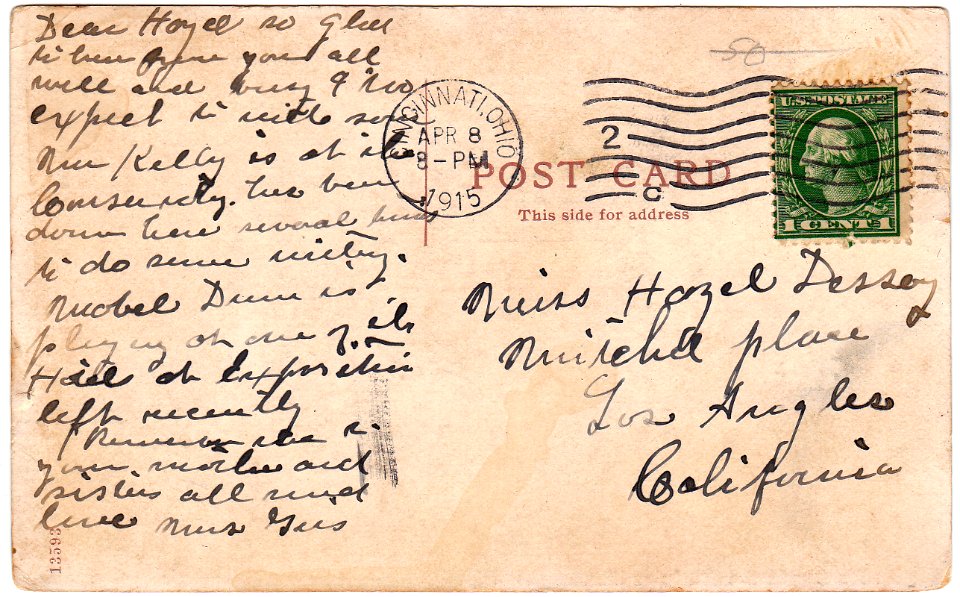 Dear Hazel so glad
to hear from you all
well and busy I too
expect to write soon
Miss Kelly is at the
has been
down here several times
to do some writing.
Mabel Dunn is
playing at one of the
Hotels at Exposition
left recently
Remember me to
your mother and
sisters all send
love Miss Gus
13593
50
CINCINNATI, OHIO
APR 8
8-PM
1915
2
C
POST CARD
This side for address
U.S. POSTAGE
1 CENT 1
Miss Hazel Dessey
Mitchel place
Los Angles
California